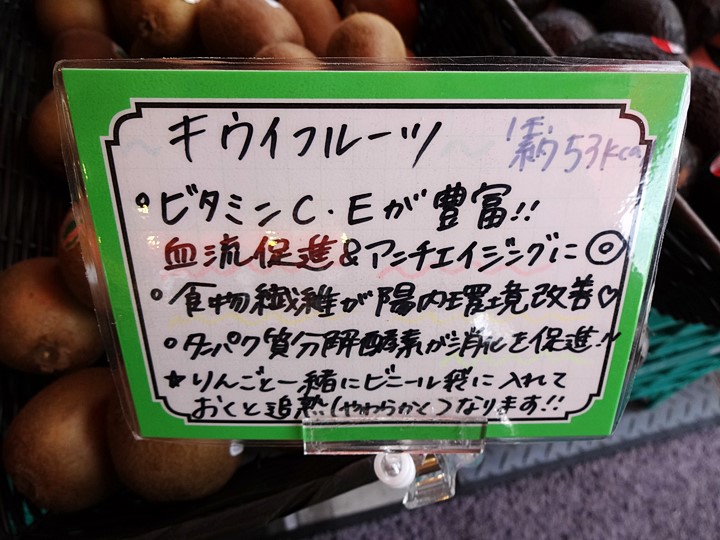 キウイフルーツ
1ヶ 約53kcal
・ビタミンC・Eが豊富!!
血流促進&アンチエイジングに◎
・食物繊維が陽内環境改善♡
・タンパク質分解酵素が消化を促進!!
★りんごと一緒にビニール袋に入れて
おくと追熟(やわらかく)なります!!